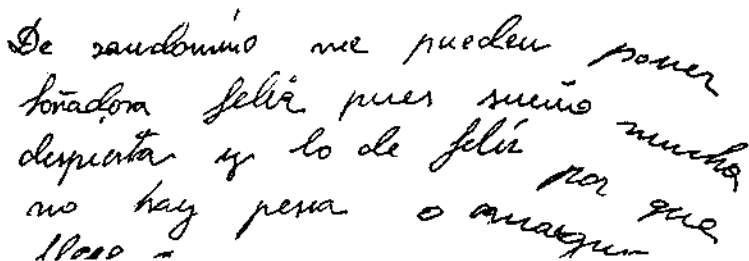 De saudomino me pueden poner
soñadora feliz pues sueño mucho
despierta y lo de feliz por que
no hay pena o